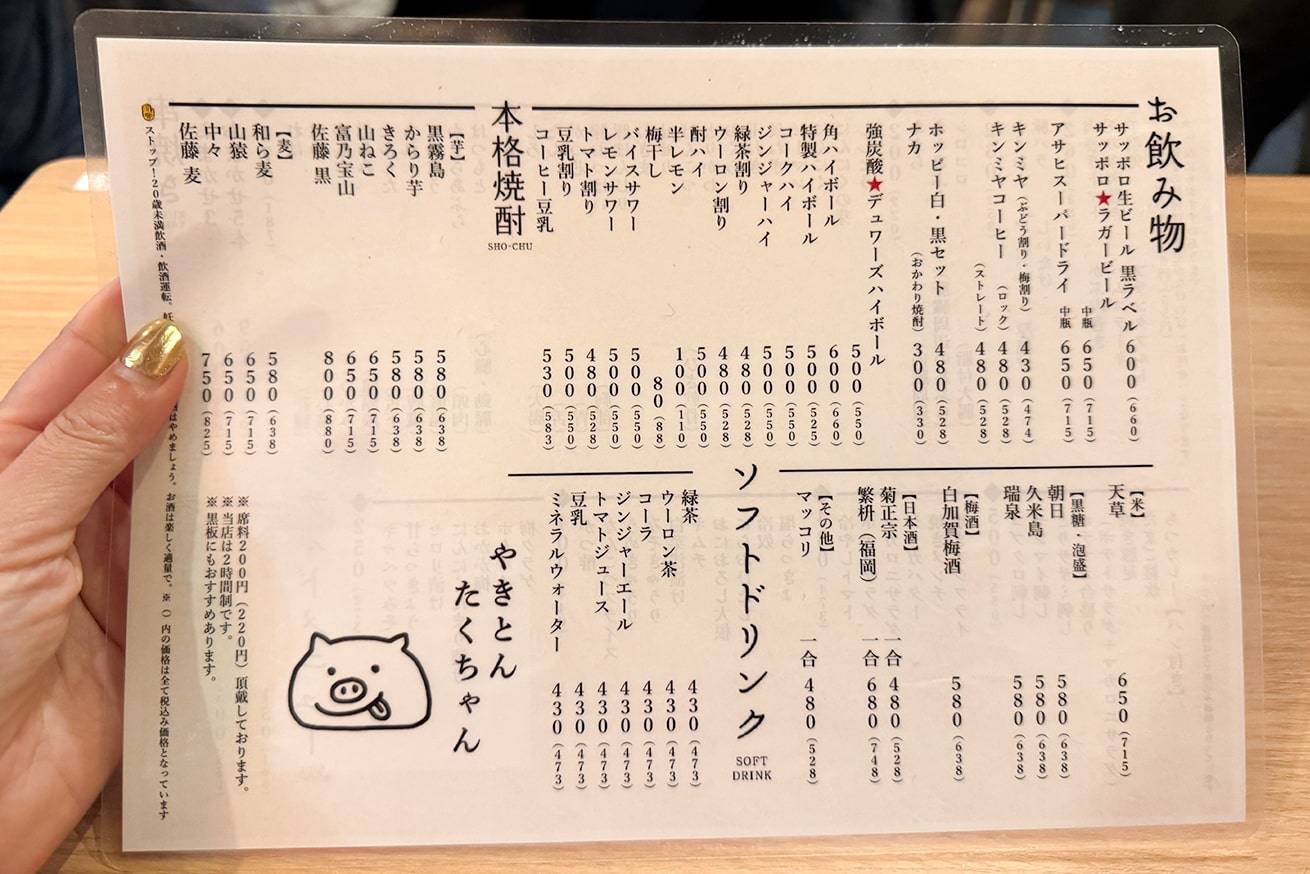 お飲み物
サッポロ生ビール 黒ラベル 600（660）
サッポロ★ラガービール 中瓶 650（715）
アサヒスーパードライ 中瓶 650（715）
キンミヤ（ぶどう割り・梅割り） 430（474）
キンミヤコーヒー （ロック） 480（528）
（ストレート） 480（528）
ホッピー白・黒セット 480（528）
ナカ （おかわり焼酎） 300（330）
強炭酸★デュワーズハイボール 500（550）
角ハイボール 600（660）
特製ハイボール 500（525）
コークハイ 500（550）
ジンジャーハイ 500（550）
緑茶割り 480（528）
ウーロン割り 480（528）
酎ハイ 500（550）
半レモン 100（110）
梅干し 80（88）
バイスサワー 500（550）
レモンサワー 500（550）
トマト割り 480（528）
豆乳割り 500（550）
コーヒー豆乳 530（583）
本格焼酎
SHO-CHU
【芋】
黒霧島 580（638）
からり芋 580（638）
きろく 580（638）
山ねこ 650（715）
富乃宝山 650（715）
佐藤 黒 800（880）
【麦】
和ら麦 580（638）
山猿 650（715）
中々 650（715）
佐藤 麦 750（825）
【米】
天草 650（715）
【黒糖・泡盛】
朝日 580（638）
久米島 580（638）
瑞泉 580（638）
【梅酒】
白加賀梅酒 580（638）
【日本酒】
菊正宗 一合 480（528）
繁枡（福岡） 一合 680（748）
【その他】
マッコリ 一合 480（528）
ソフトドリンク
SOFT
DRINK
緑茶 430（473）
ウーロン茶 430（473）
コーラ 430（473）
ジンジャーエール 430（473）
トマトジュース 430（473）
豆乳 430（473）
ミネラルウォーター 430（473）
やきとん
たくちゃん
※席料200円（220円）頂戴しております。
※当店は2時間制です。
※黒板にもおすすめあります。
ストップ！20歳未満飲酒・飲酒運転。 はやめましょう。お酒は楽しく適量で。※（）内の価格は全て税込み価格となっています